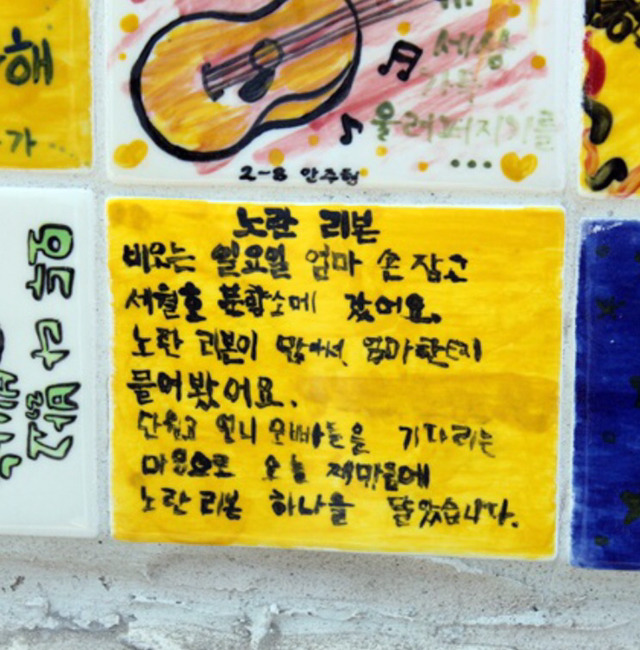 해
가
세상
가득
울려퍼지기를
...
2-8 안주형
노란 리본
비오는 일요일 엄마 손 잡고
세월호 분향소에 갔어요.
노란 리본이 많아서, 엄마한테
물어봤어요.
단원고 언니 오빠들을 기다리는
마음으로 오늘 제마음에
노란리본 하나를 달았습니다.